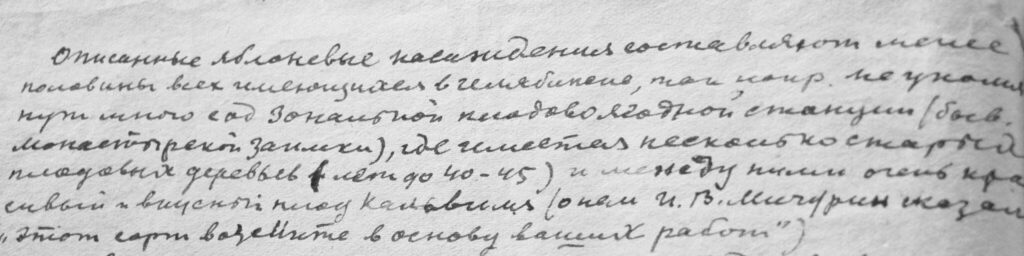 Описанные яблоневые насаждения составляют менее
половины всех имеющихся в Челябинске, так, напр. не упомя
нут мною сад Зональной плодовоягодной станции (быв.
Монастырской Заимки), где имеется несколько старых
плодовых деревьев (лет до 40-45) и между ними очень кра
сивый и вкусный плод Кальвиля (о нем И. В. Мичурин сказал
"Этот сорт возьмите в основу ваших работ")